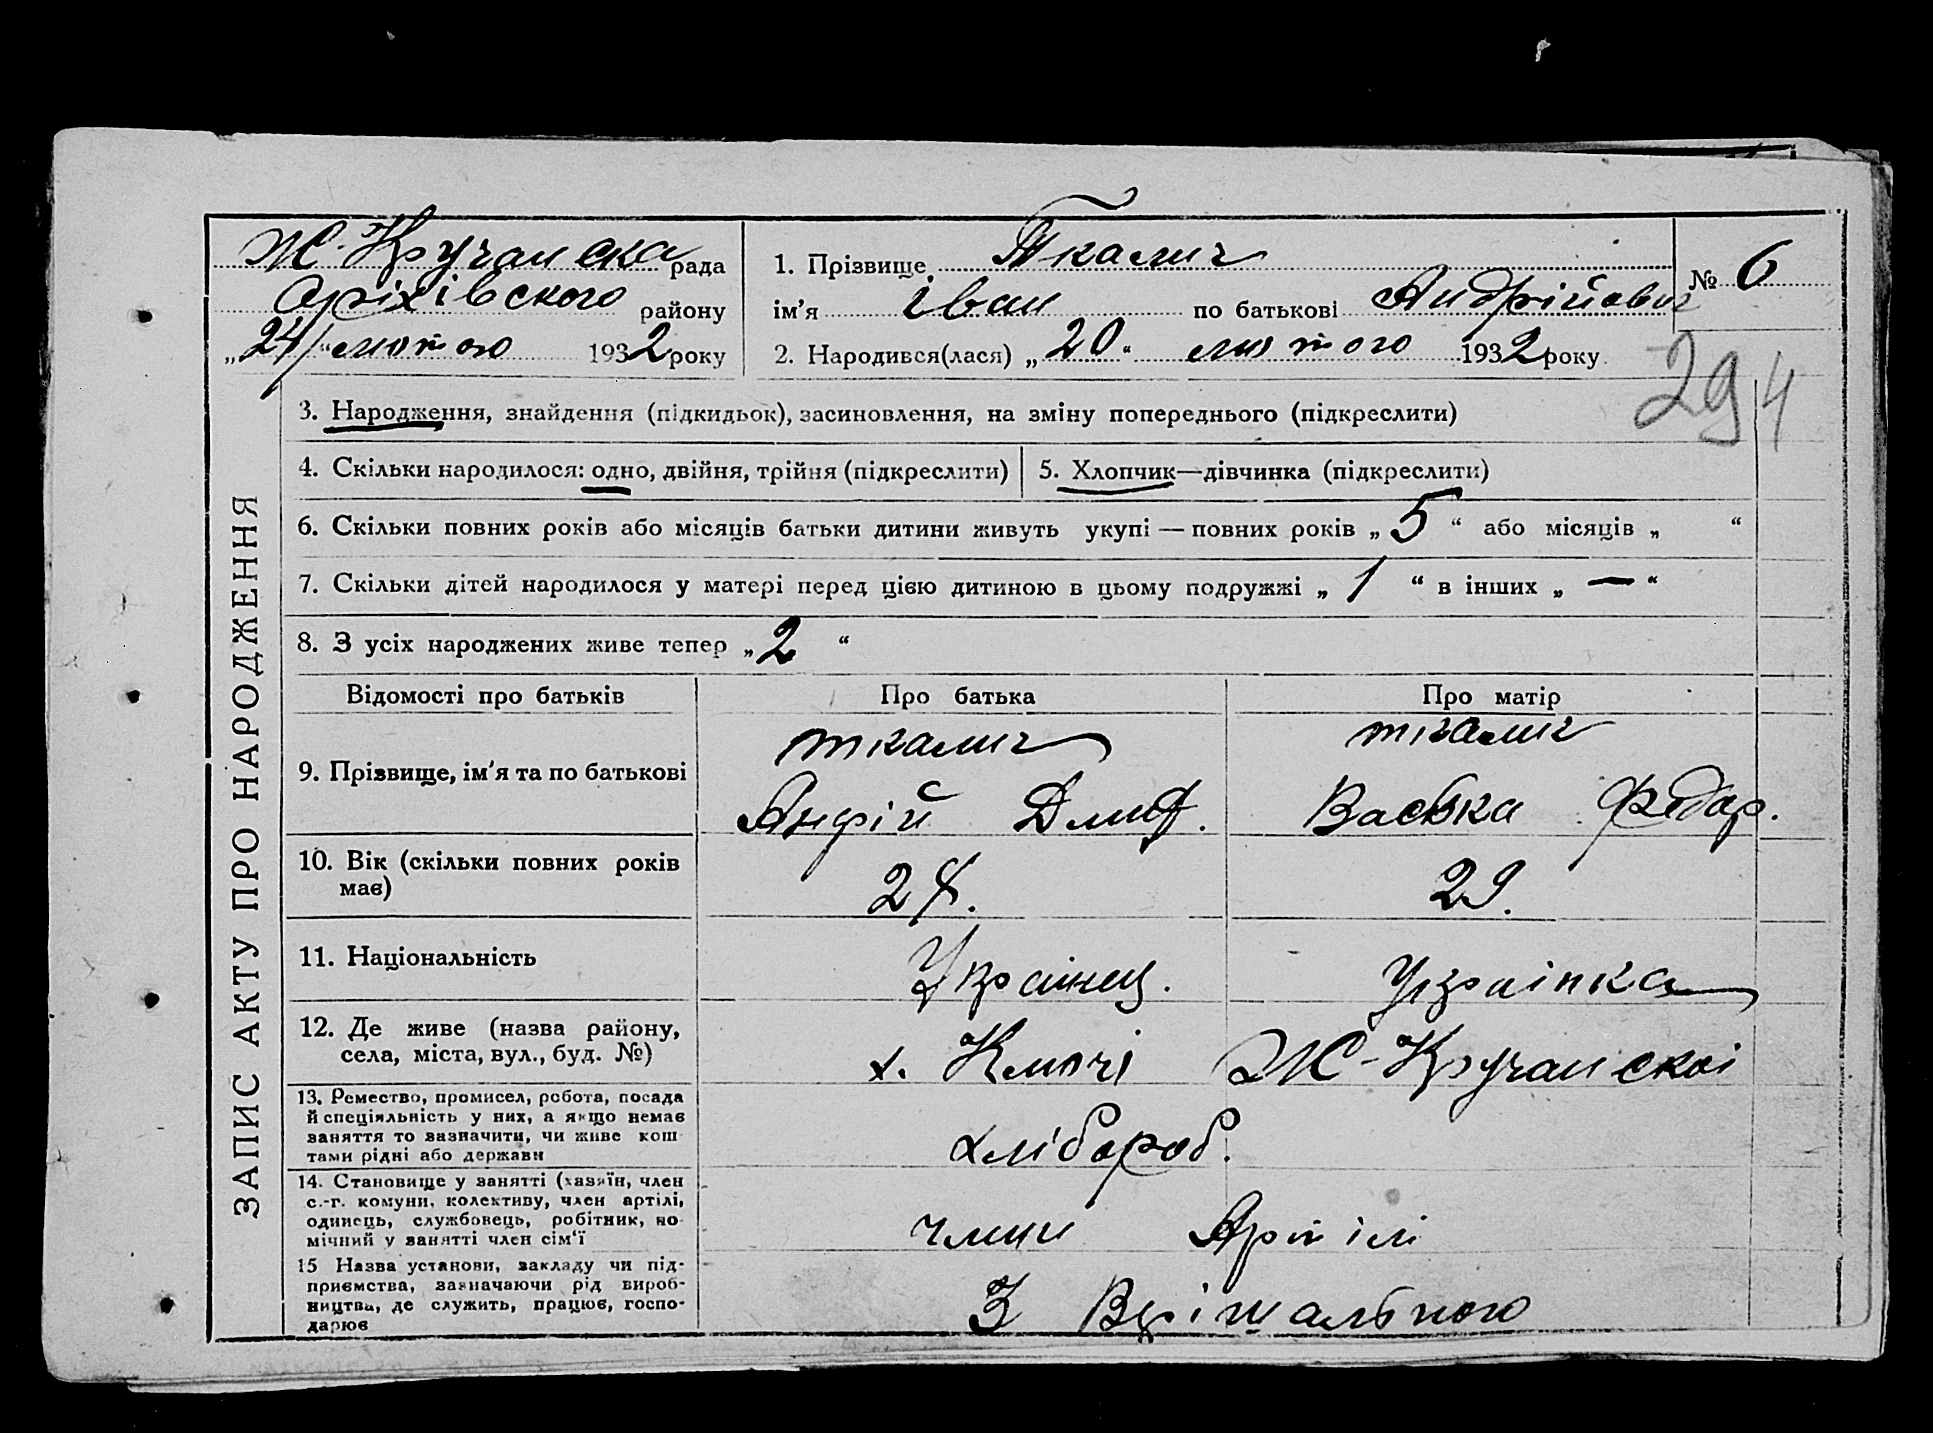 Ж-Кручанска рада
Оріхівського району
„24“ лютого 1932 року
1. Прізвище Ткалич
ім’я Іван по батькові Андрійович
2. Народився(лася) „20“ лютого 1932 року
№ 6
294
ЗАПИС АКТУ ПРО НАРОДЖЕННЯ
3. Народження, знайдення (підкидьок), засиновлення, на зміну попереднього (підкреслити)
4. Скільки народилося: одно, двійня, трійня (підкреслити)
5. Хлопчик—дівчинка (підкреслити)
6. Скільки повних років або місяців батьки дитини живуть укупі — повних років „5“ або місяців „ “
7. Скільки дітей народилося у матері перед цією дитиною в цьому подружжі „1“ в інших „—“
8. З усіх народжених живе тепер „2“
Відомості про батьків Про батька Про матір
9. Прізвище, ім’я та по батькові
ткалич
Андрій Дмит.
ткалич
Васька Федор.
10. Вік (скільки повних років
має)
28. 29.
11. Національність Українец. Українка
12. Де живе (назва району,
села, міста, вул., буд. №)
х. Ключі Ж-Кручанскоі
13. Ремество, промисел, робота, посада
й спеціяльність у них, а якщо немає
заняття то зазначити, чи живе кош
тами рідні або держави
хлібороб.
14. Становище у занятті (хазяїн, член
с.-г. комуни, колективу, член артілі,
одинець, службовець, робітник, по-
мічний у занятті член сім’ї
член Артілі
15 Назва установи, закладу чи під-
приємства, зазначаючи рід вироб-
ництва, де служить, працює, госпо-
дарює
З Врішальною